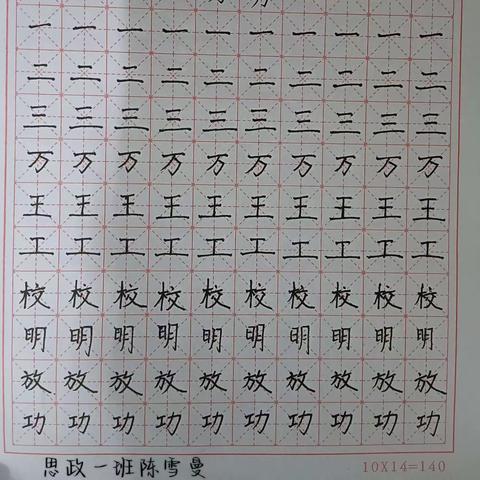 一 一 一 一 一 一 一 一 一 一
二 二 二 二 二 二 二 二 二 二
三 三 三 三 三 三 三 三 三 三
万 万 万 万 万 万 万 万 万 万
王 王 王 王 王 王 王 王 王 王
工 工 工 工 工 工 工 工 工 工
校 校 校 校 校 校 校 校 校 校
明 明 明 明 明 明 明 明 明 明
放 放 放 放 放 放 放 放 放 放
功 功 功 功 功 功 功 功 功 功
思政一班陈雪曼 10X14=140